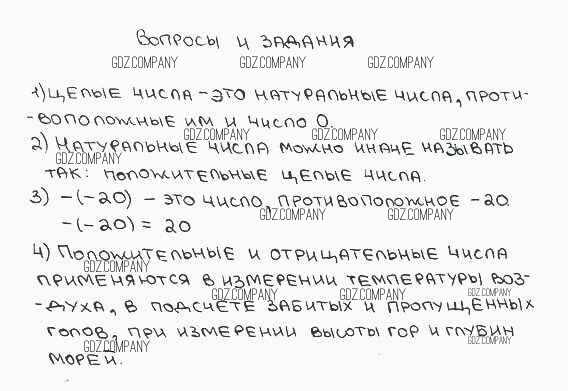 Вопросы и задания
GDZ.COMPANY GDZ.COMPANY GDZ.COMPANY
1) Целые числа – это натуральные числа, проти-
-воположные им и число 0.
GDZ.COMPANY GDZ.COMPANY GDZ.COMPANY
2) Натуральные числа можно иначе называть
GDZ.COMPANY
так: положительные целые числа.
3) -(-20) – это число, противоположное -20.
GDZ.COMPANY GDZ.COMPANY
-(-20) = 20
4) Положительные и отрицательные числа
GDZ.COMPANY
применяются в измерении температуры воз-
GDZ.COMPANY GDZ.COMPANY GDZ.COMPANY
-духа, в подсчёте забитых и пропущенных
голов, при измерении высоты гор и глубин
GDZ.COMPANY GDZ.COMPANY
морей.